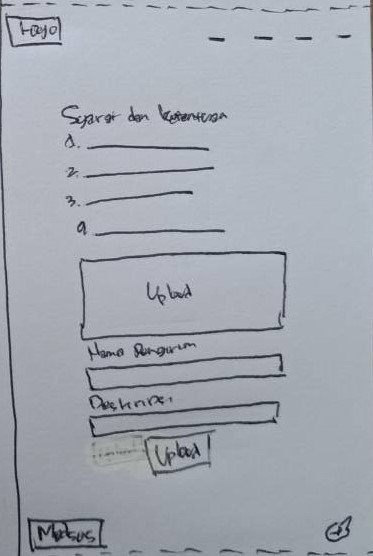 Logo
Syarat dan Ketentuan
1.
2.
3.
4
Upload
Nama Pengirim
Deskripsi
Upload